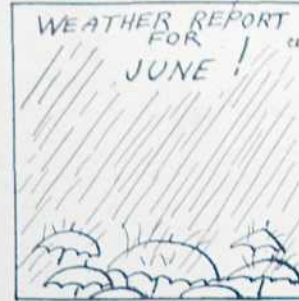 WEATHER REPORT
FOR
JUNE!